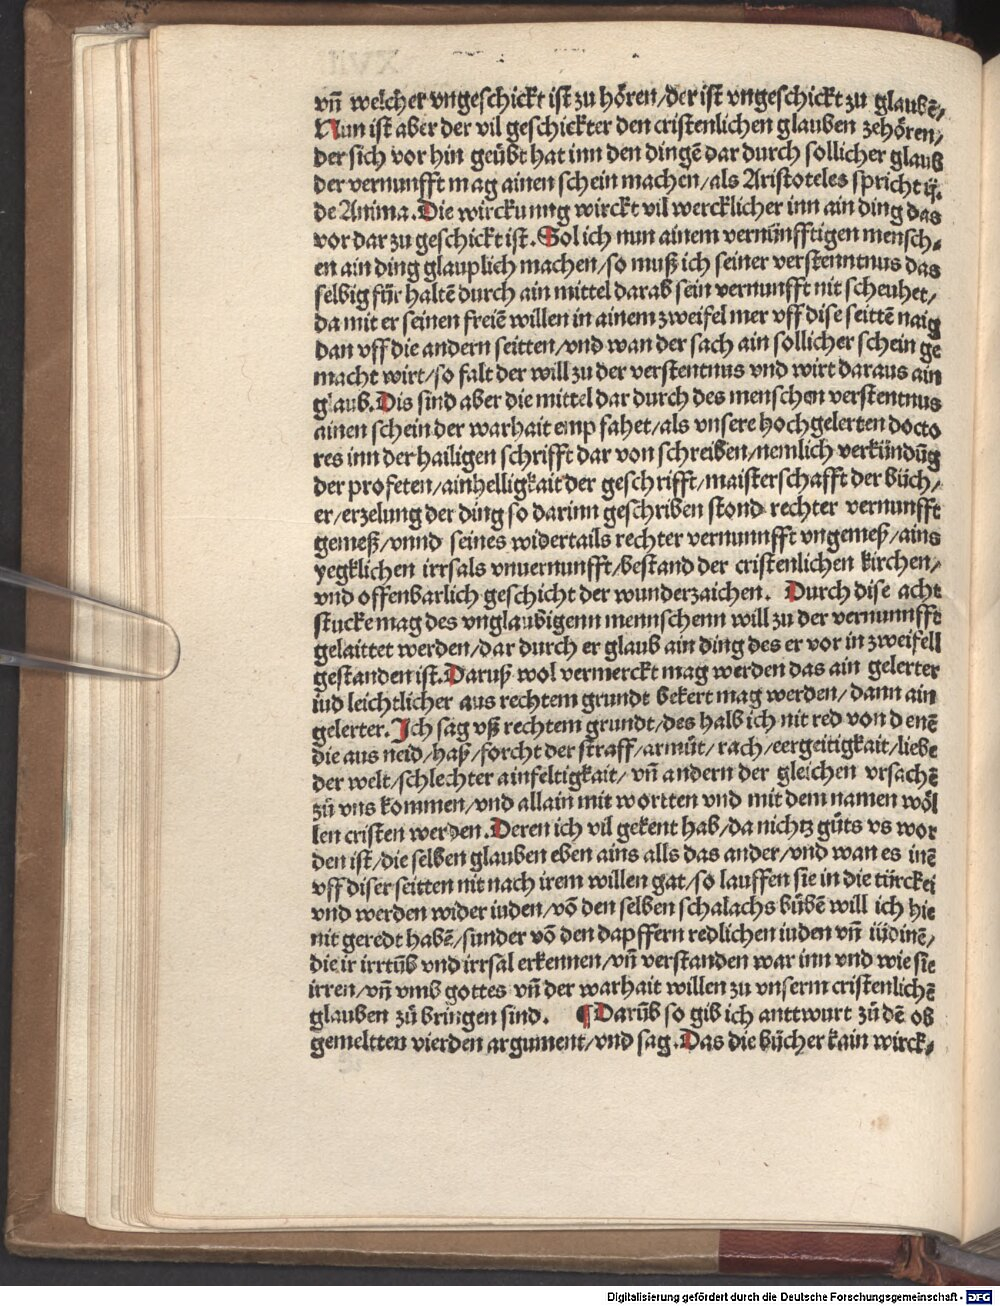 vn̄ welcher vngeschickt ist zu hören/der ist vngeschickt zu glaubē,
Nun ist aber der vil geschickter den cristenlichen glauben zehören,
der sich vor hin geübt hat inn den dingē dar durch sollicher glaub
der vernunfft mag ainen schein machen/als Aristoteles spricht ij.
de Anima. Die wirckunng wirckt vil wercklicher inn ain ding das
vor dar zu geschickt ist. Sol ich nun ainem vernünfftigen mensch⸗
en ain ding glauplich machen/so muß ich seiner verstenntnus das
selbig für haltē durch ain mittel darab sein vernunfft nit scheuhet/
da mit er seinen freiē willen in ainem zweifel mer vff dise seittē naig
dan vff die andern seitten/vnd wan der sach ain sollicher schein ge
macht wirt/so falt der will zu der verstentnus vnd wirt daraus ain
glaub. Dis sind aber die mittel dar durch des menschen verstentnus
ainen schein der warhait emp fahet/als vnsere hochgelerten docto
res inn der hailigen schrifft dar von schreiben/nemlich verkündūg
der profeten/ainhelligkait der geschrifft/maisterschafft der büch⸗
er/erzelung der ding so darinn geschriben stond rechter vernunfft
gemeß/vnnd seines widertails rechter vernunnfft vngemeß/ains
yegklichen irrsals vnuernunfft/bestand der cristenlichen kirchen/
vnd offenbarlich geschicht der wunderzaichen. Durch dise acht
stucke mag des vnglaubigenn mennschenn will zu der vernunnfft
gelaittet werden/dar durch er glaub ain ding des er vor in zweifell
gestanden ist. Daruß wol vermerckt mag werden das ain gelerter
iud leichtlicher aus rechtem grundt bekert mag werden/dann ain
gelerter. Ich sag vß rechtem grundt/des halb ich nit red von denē
die aus neid/haß/forcht der straff/armůt/rach/eergeitigkait/liebe
der welt/schlechter ainfeltigkait/vn̄ andern der gleichen vrsachē
zů vns kommen/vnd allain mit wortten vnd mit dem namen wöl
len cristen werden. Deren ich vil gekent hab/da nichtz gůts vs wor
den ist/die selben glauben eben ains alls das ander/vnd wan es inē
vff diser seitten nit nach irem willen gat/so lauffen sie in die türckei
vnd werden wider iuden/vō den selben schalachs bůbē will ich hie
nit geredt habē/sunder vō den dapffern redlichen iuden vn̄ iüdinē/
die ir irrtūb vnd irrsal erkennen/vn̄ verstanden war inn vnd wie sie
irren/vn̄ vmb gottes vn̄ der warhait willen zu vnserm cristenlichē
glauben zů bringen sind. ¶ Darūb so gib ich anttwurt zů dē ob
gemeltten vierden argument/vnd sag. Das die bücher kain wirck⸗
Digitalisierung gefördert durch die Deutsche Forschungsgemeinschaft - DFG